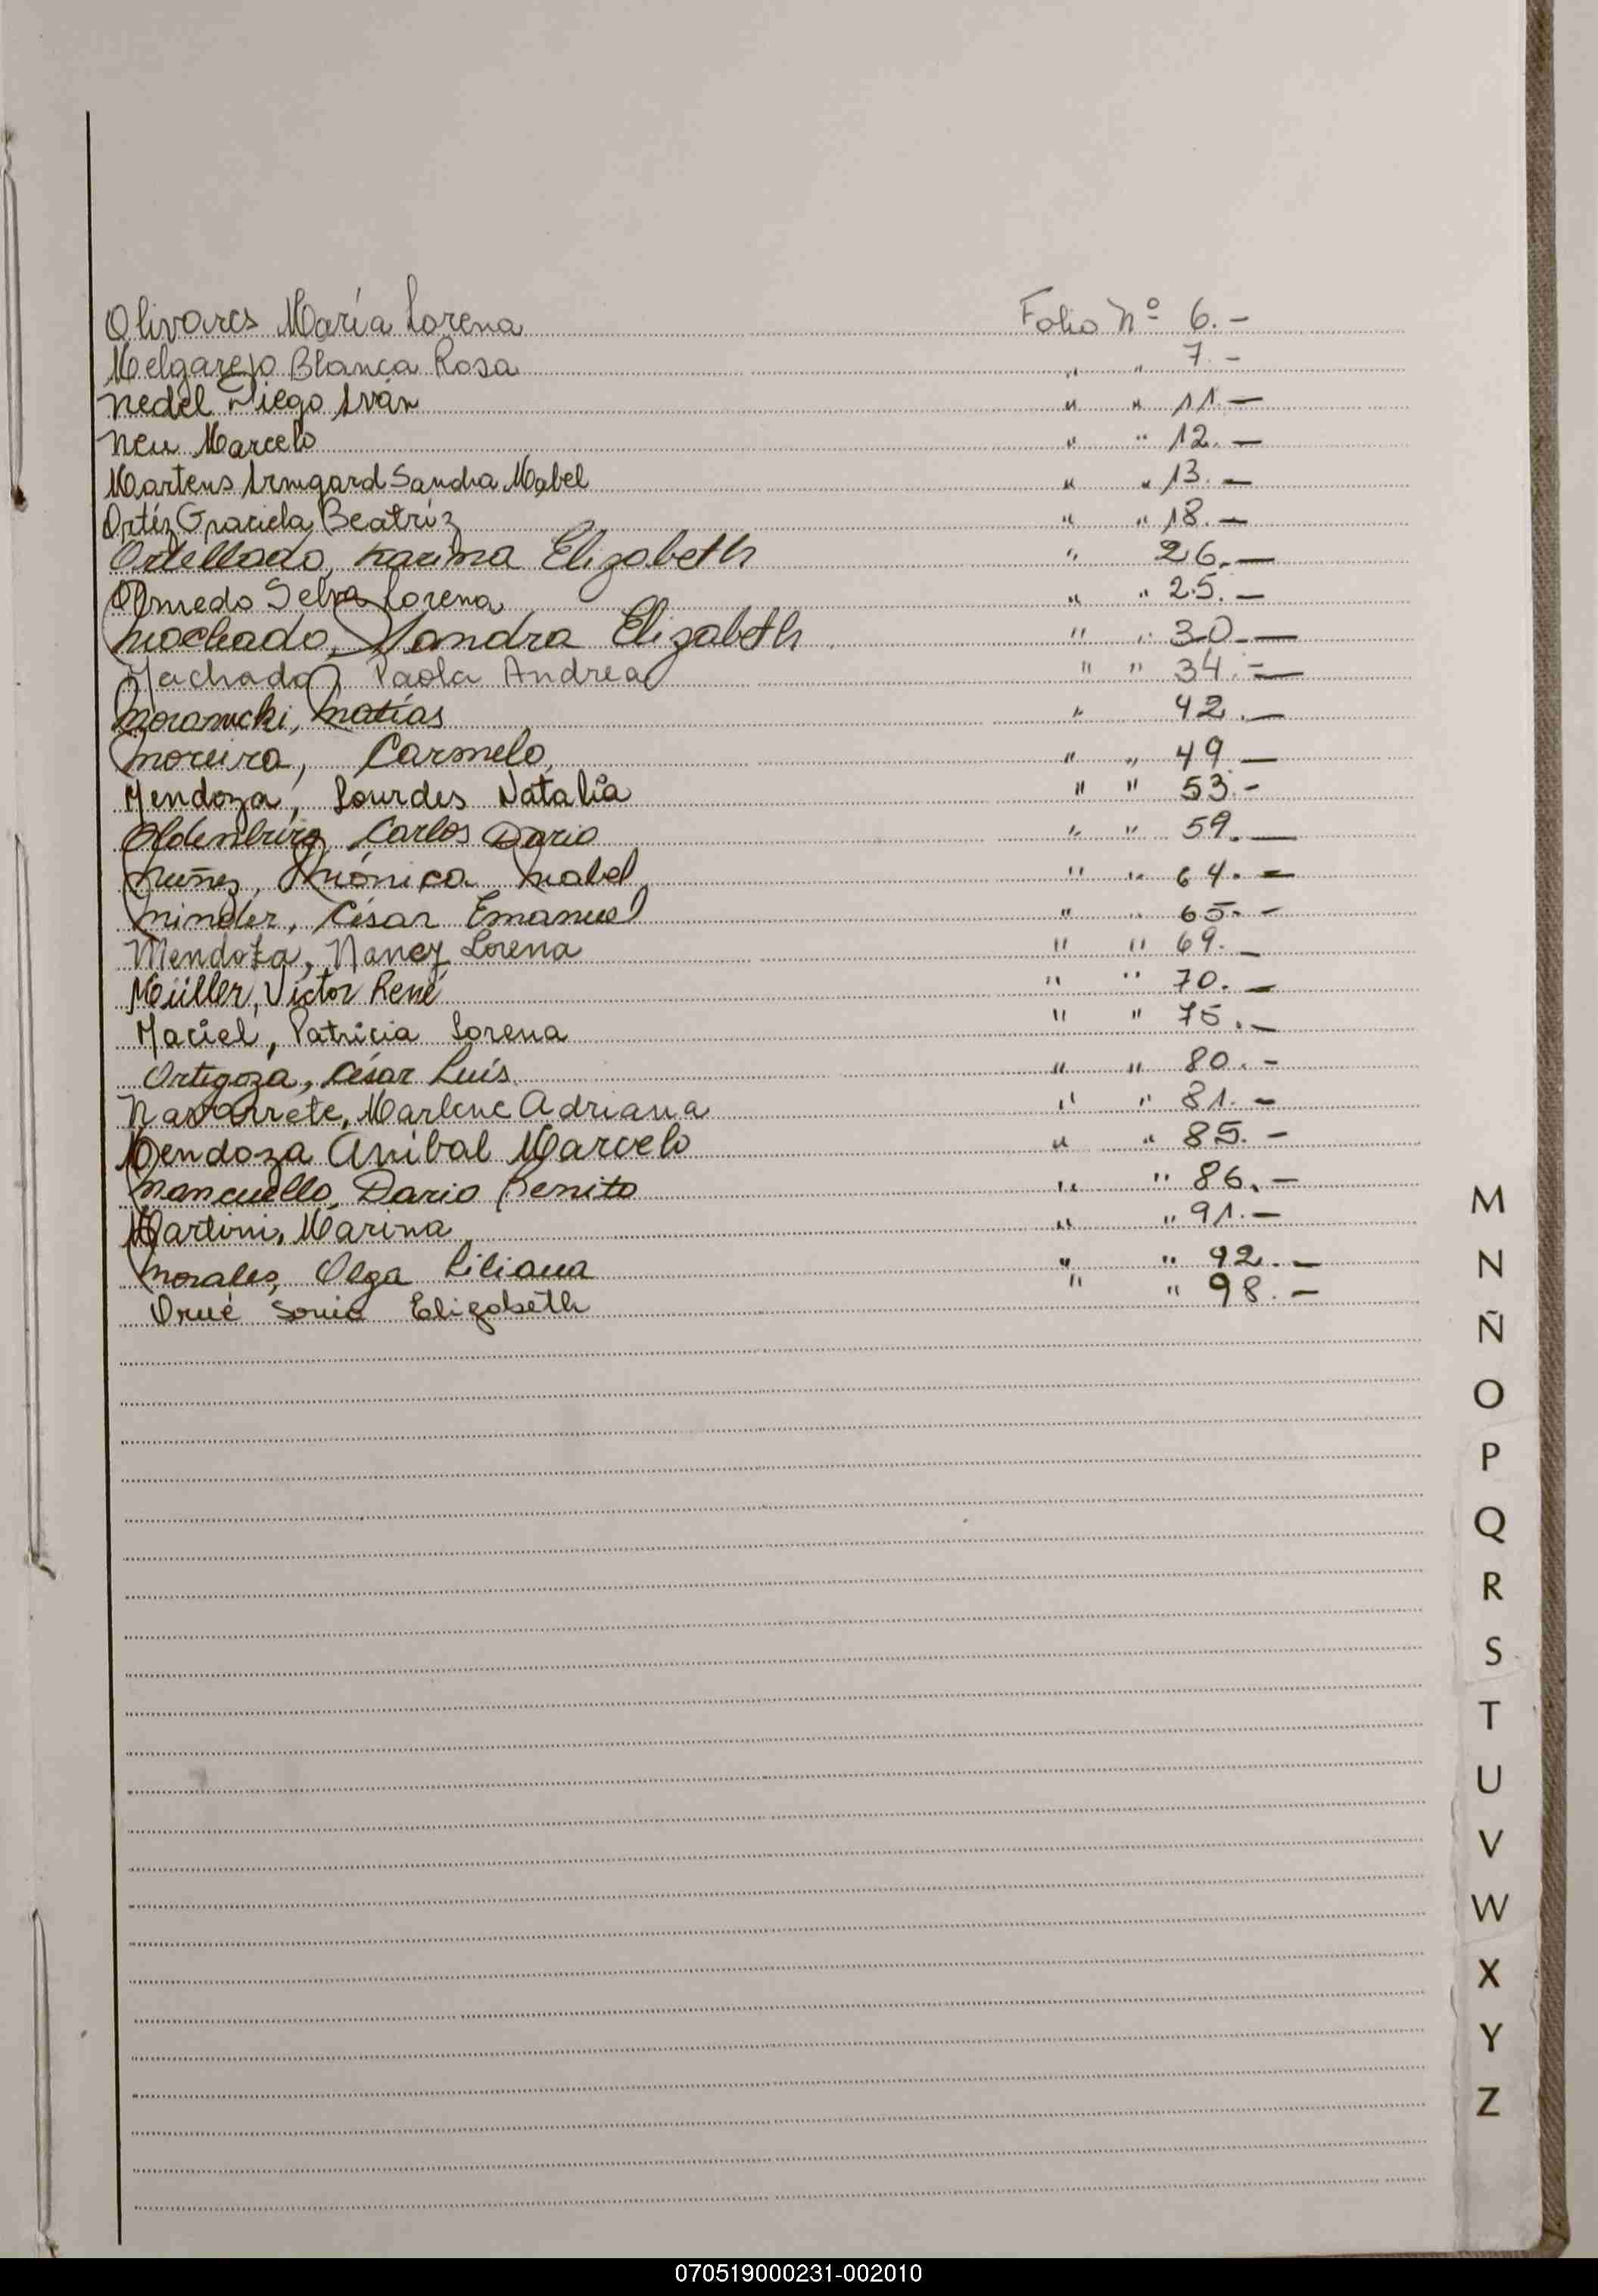 Olivares María Lorena Folio Nº 6.-
Melgarejo Blanca Rosa " " 7.-
Nedel Diego Iván " " 11.-
Neu Marcelo " " 12.-
Martens Irmgard Sandra Mabel " " 13.-
Ortíz Graciela Beatríz " " 18.-
Ortellado, Karina Elizabeth " 26.-
Olmedo Selva Lorena " " 25.-
Machado, Sandra Elizabeth " " 30.-
Machado, Paola Andrea " " 34.-
Matías " 42.-
Moreira, Carmelo, " " 49-
Mendoza, Lourdes Natalia " " 53.-
Oldenburg, Carlos Dario " " 59.-
Nuñez, Mónica Mabel " " 64.-
Minder, César Emanuel " " 65.-
Mendoza, Nancy Lorena " " 69.-
Müller, Victor René " " 70.-
Maciel, Patricia Lorena " " 75.-
Ortigoza, César Luís " " 80.-
Navarrete, Marlene Adriana " " 81.-
Mendoza Anibal Marcelo " " 85.-
Mancuello, Dario Benito " " 86.-
Martini, Marina " " 91.-
Morales, Olga Liliana " " 92.-
Orué Sonia Elizabeth " " 98.-
M
N
Ñ
O
P
Q
R
S
T
U
V
W
X
Y
Z
070519000231-002010